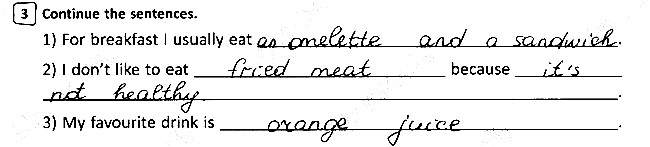 3 Continue the sentences.
1) For breakfast I usually eat an omelette and a sandwich.
2) I don't like to eat fried meat because it's
not healthy.
3) My favourite drink is orange juice.